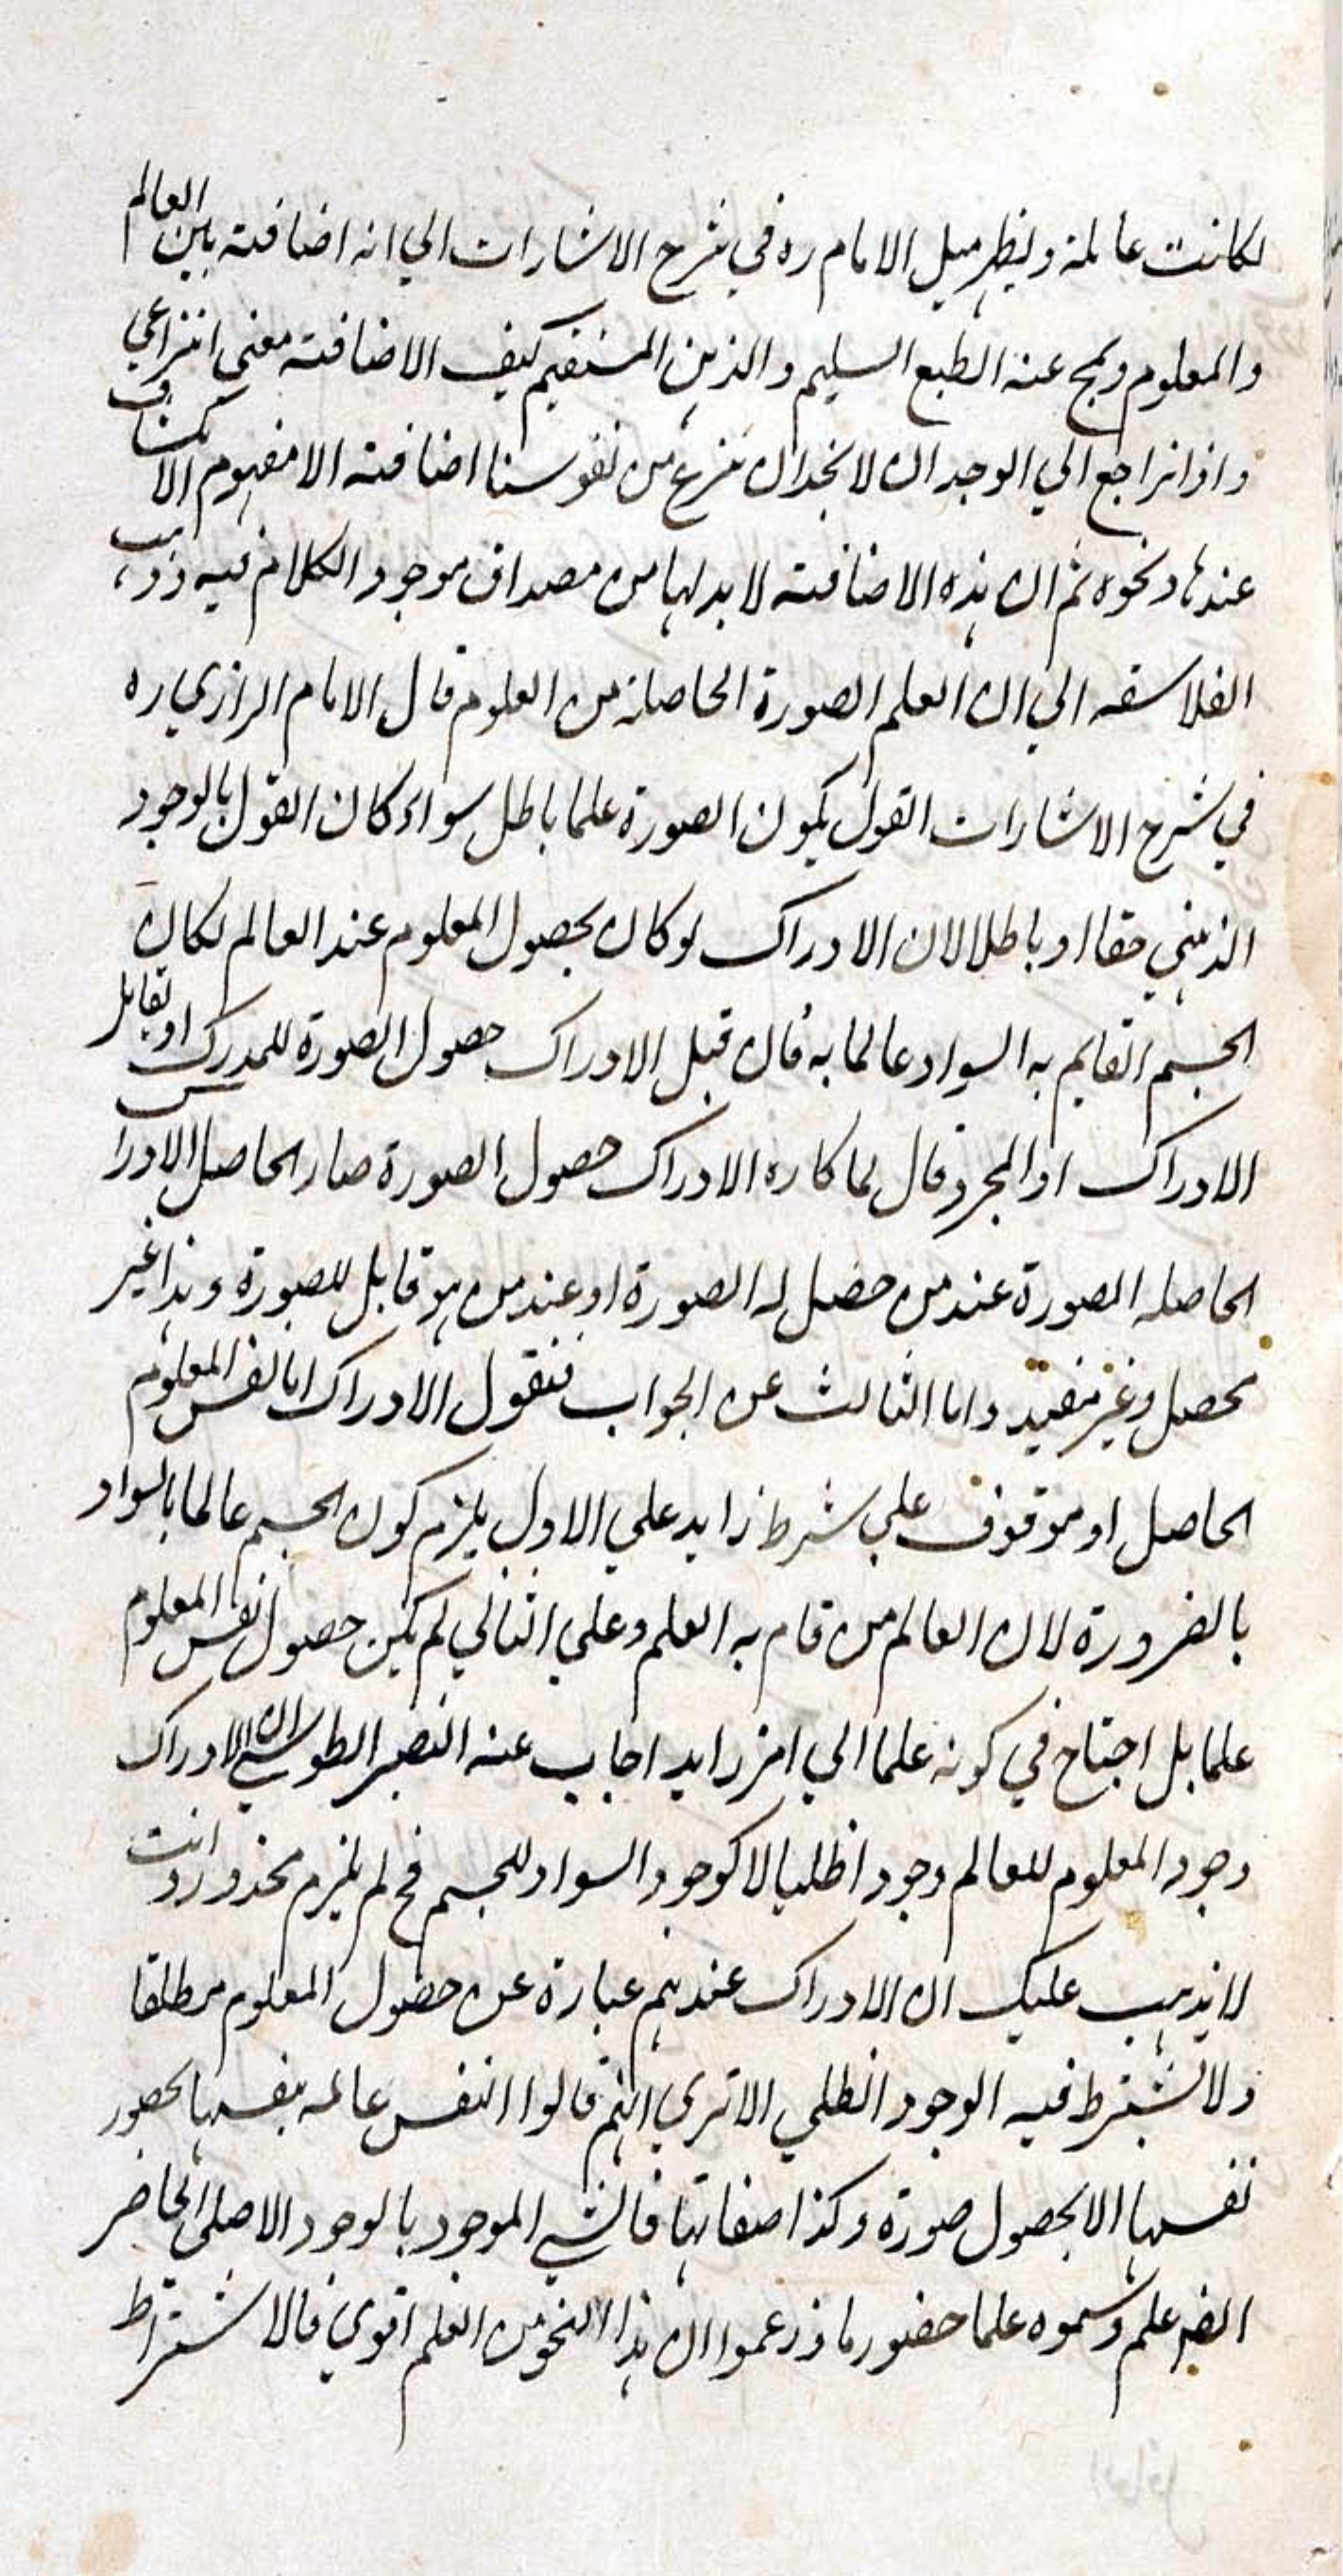 لكانت عالمة ويظهر ميل الامام ره في شرح الاشارات الي انه اضافة بين العالم
والمعلوم ويمج عنه الطبع السليم والذهن المستقيم كيف الاضافة معني انتزاعي
واذا نراجع الي الوجدان لا نجد ان ننزع من نفوسنا اضافة الا مفهوم الانكشاف
عندها ونحوه ثم ان هذه الاضافة لا بد لها من مصداق موجود الكلام فيه وذهب
الفلاسفه الي ان العلم الصورة الحاصلة من العلوم قال الامام الرازي ره
في شرح الاشارات القول بكون الصورة علما باطل سواء كان القول بالوجود
الذهني حقا او باطلا لان الادراك لو كان بحصول المعلوم عند العالم لكان
الجسم القايم به السواد عالما به فان قيل الادراك حصول الصورة للمدرك او بقابل
الادراك او المجرد قال لما كان الادراك حصول الصورة صار الحاصل الادراك
الحاصله الصورة عند من حصل له الصورة او عند من هو قابل للصورة وهذا غير
محصل وغير مفيد واما الثالث عن الجواب فنقول الادراك اما نفس المعلوم
الحاصل او موقوف علي شرط زايد علي الاول يلزم كون الجسم عالما بالسواد
بالضرورة لان العالم من قام به العلم وعلي الثاني لم يكن حصول نفس المعلوم
علما بل احتاج في كونه علما الي امر زايد اجاب عنه النصير الطوسي ان الادراك
وجود المعلوم للعالم وجودا ظليا لا كوجود السواد للجسم فح لم يلزم محذور وانت
لا يذهب عليك ان الادراك عندهم عبارة عن حصول المعلوم مطلقا
ولا يشترط فيه الوجود الظلي الا تري انهم قالوا النفس عالمه بنفسها بحضور
نفسها لا بحصول صورة وكذا صفاتها فالشي الموجود بالوجود الاصلي الحاضر
ايضا علم وسموه علما حضوريا وزعموا ان هذا النحو من العلم اقوي فالاشتراط